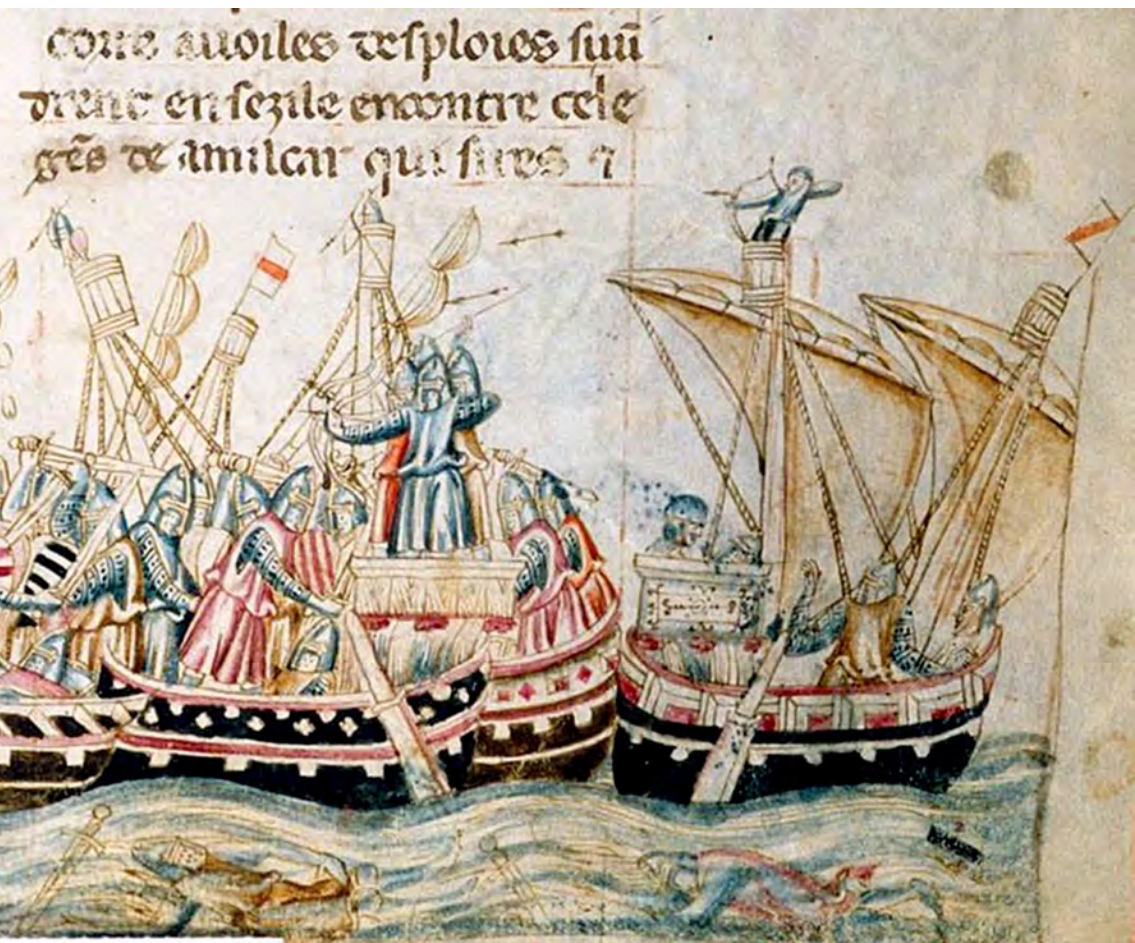 corre auoiles desploies suiῡ
drent en sezile encontre cele
gēs de amilcar qui sures ⁊